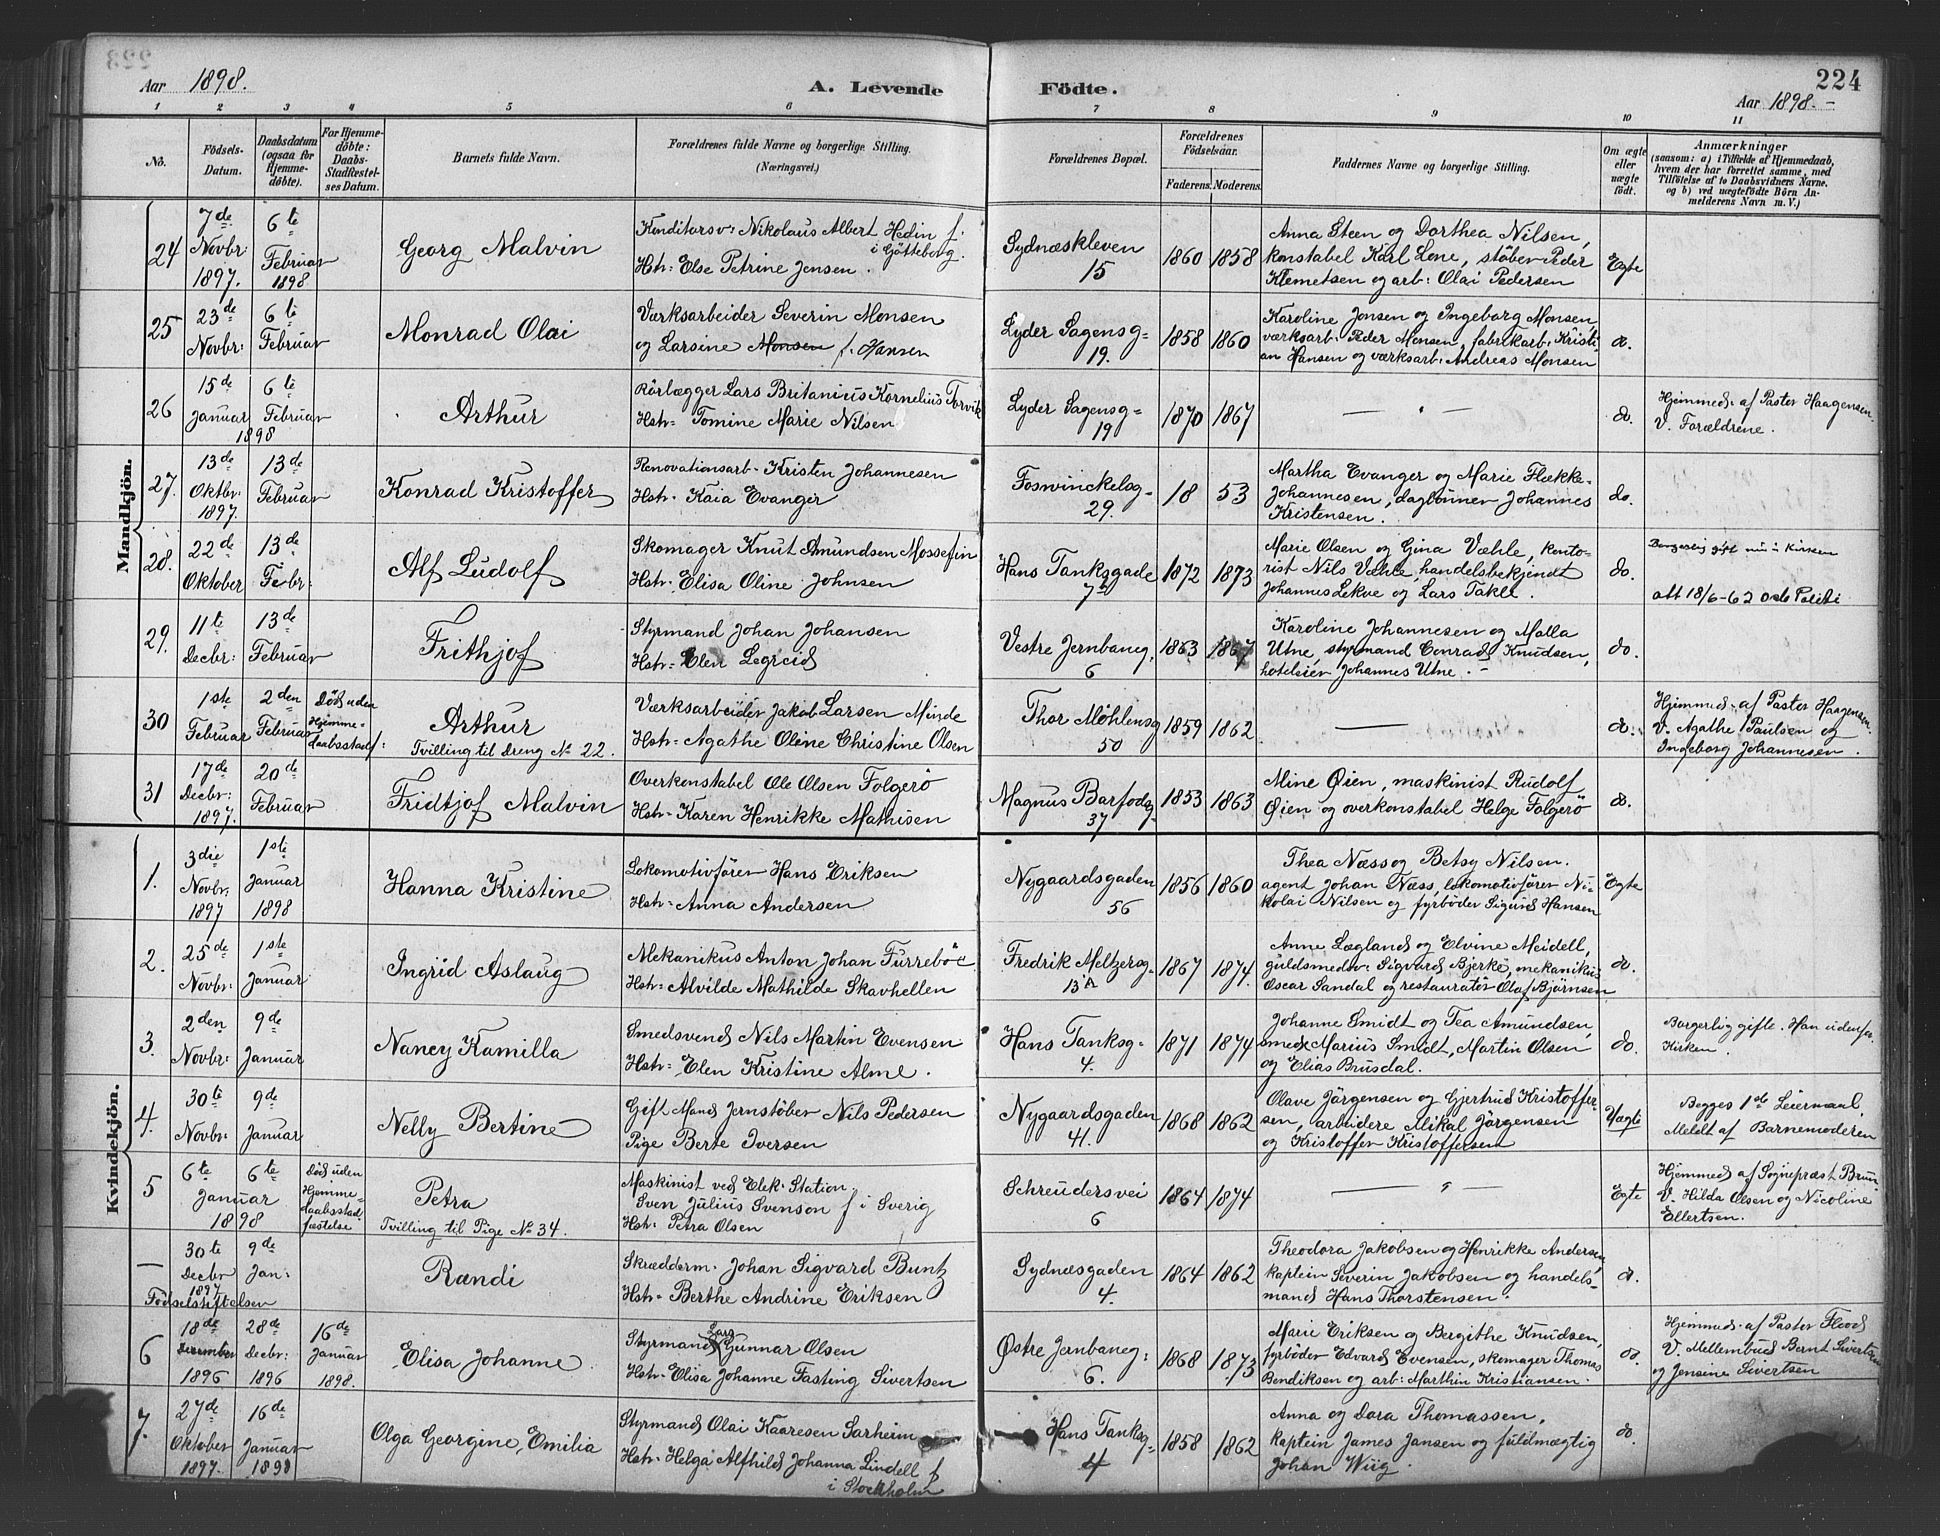 Aar 1898.
A. Levende Födte.
224
Aar 1898.-
1 2 3 4 5 6 7 8 9 10 11
No.
Födsels-
Datum.
Daabsdatum
(ogsaa for
Hjemme-
döbte).
For Hjemme-
döbte:
Daabs-
Stadfæstel-
ses Datum.
Barnets fulde Navn.
Forældrenes fulde Navne og borgerlige Stilling.
(Næringsvei.)
Forældrenes Bopæl.
Forældrenes
Födselsaar.
Faderens. Moderens.
Faddernes Navne og borgerlige Stilling.
Om ægte
eller
uægte
födt.
Anmærkninger
(saasom: a) i Tilfælde af Hjemmedaab,
hvem der har forrettet samme, med
Tilföielse af to Daabsvidners Navne.
og b) ved uægtefödte Börn An-
melderens Navn m. V.)
Mandkjön.
24
7de
Novbr:
1897.
6te
Februar
1898
Georg Malvin
Konditorsv: Nikolaus Albert Hedin f.
i Gøtteborg.
Hstr: Else Petrine Jensen.
Sydnæskleven
15
1860 1858
Anna Steen og Dorthea Nilsen,
konstabel Karl Lone, støber Peder
Klemetsen og arb: Olai Pedersen
Egte
25
23de
Novbr:
6te
Februar
Monrad Olai
Værksarbeider Severin Monsen
og Larsine Monsen f. Hansen
Lyder Sagensg-
19.
1858 1860
Karoline Jensen og Ingeborg Monsen,
værksarb: Peder Monsen, fabrikarb: Kristi-
an Hansen og værksarb: Andreas Monsen
do.
26
15de
Januar
6te
Februar
1898
Arthur
Rørlægger Lars Britanius Kornelius Torvik
Hstr: Tomine Marie Nilsen
Lyder Sagensg-
19
1870 1867
— " —
do.
Hjemmed. af Pastor Haagensen.
V. Forældrene.
27.
13de
Oktbr.
1897.
13de
Februar
Konrad Kristoffer
Renovationsarb. Kristen Johannesen
Hstr. Kaia Evanger
Foswinckelsg-
29.
18 53
Martha Evanger og Marie Flække-
Johannesen, dagbunner Johannes
Kristensen.
do.
28.
22de
Oktober
13de
Febr:
Alf Ludolf
Skomager Knut Amundsen Mossefin
Hstr. Elisa Oline Johnsen
Hans Tanksgade
7
1872 1873
Marie Olsen og Gina Væhle, konto-
rist Nils Væhle, handelsbekjendt
Johannes Lekve og Lars Takle.
do.
Borgerlig gift nu i Kirken
att 18/6-62 Oslo Politi
29.
11te
Decbr:
13de
Februar
Frithjof
Styrmand Johan Johansen
Hstr: Elen Legreid
Vestre Jernbaneg.
6
1863 1867
Karoline Johannesen og Malla
Utne, styrmand Conrad Knudsen,
hoteleier Johannes Utne. -
do.
30
1ste
Februar
2den
Februar
Død uden
Hjemme-
daabsstadf:
Arthur
Tvilling til Dreng No 22.
Værksarbeider Jakob Larsen Minde
Hstr: Agathe Oline Christine Olsen
Thor Møhlensg
50
1859 1862
—
do.
Hjemmed. af Pastor Haagensen.
V. Agathe Paulsen og
Ingeborg Johannesen.
31
17de
Decbr:
1897.
20de
Februar
Fridtjof Malvin
Overkonstabel Ole Olsen Folgerö
Hstr: Karen Henrikke Mathisen
Magnus Barfodsg-
37
1853 1863
Mine Øien, maskinist Rudolf
Øien og overkonstabel Helge Folgerö
do.
Kvindekjön.
1.
3die
Novbr.
1897
1ste
Januar
1898
Hanna Kristine
Lokomotivfører Hans Eriksen
Hstr: Anna Andersen
Nygaardsgaden
56
1856 1860
Thea Næss og Betsy Nilsen.
agent Johan Næss, lokomotivfører Ni-
kolai Nilsen og fyrbøder Sigurd Hansen
Egte
2.
25de
Novbr:
1ste
Januar
Ingrid Aslaug
Mekanikus Anton Johan Furreböe
Hstr: Alvilde Mathilde Skavhellen
Fredrik Meltzersg-
13A
1867 1874.
Anne Lægland og Elvine Meidell,
guldsmedsv: Sigvard Bjerke, mekanikus
Oscar Sandal og restauratør Olaf Bjørnsen
do.
3.
2den
Novbr:
9de
Januar
Nancy Kamilla
Smedsvend Nils Martin Evensen
Hstr: Elen Kristine Alme.
Hans Tanksg-
4.
1871 1874
Johanne Smidt og Tea Amundsen,
smed Marius Smidt, Martin Olsen
og Elias Brusdal.
do.
Borgerlig gifte. Han udenfor
Kirken.
4.
30te
Novbr:
9de
Januar
Nelly Bertine
Gift Mand Jernstøber Nils Pedersen
Pige Berte Iversen
Nygaardsgaden
41.
1868 1862
Olave Jørgensen og Gjertrud Kristoffer-
sen, arbeidere Mikal Jørgensen
og Kristoffer Kristoffersen
Uægte
Begges 1ste Leiermaal.
Meldt af Barnemoderen
5
6te
6te
Januar
1898
Død uden
Hjemme-
daabsstad-
fæstelse
Petra
Tvilling til Pige No 34.
Maskinist ved Elek. Station.
Sven Julius Svenson f. i Sverig
Hstr: Petra Olsen
Schreudersvei
6
1864 1874
— " —
Egte
Hjemmed. af Sognepræst Brun
V. Hilda Olsen og Nicoline
Ellertsen.
—
30te
Decbr
1897
9de
Jan:
Fødselsstiftelsen
Rændi
Skrædderm. Johan Sigvard Buntz
Hstr: Berthe Andrine Eriksen
Sydnæsgaden
4.
1864 1862
Theodora Jakobsen og Henrikke Andersen,
kaptein Severin Jakobsen og handels-
mand Hans Thorstensen.
do.
6
18de
December
1896
28de
Decbr:
1896
16de
Januar
1898.
Elisa Johanne
Lars
Styrmand Gunnar Olsen
Hstr: Elisa Johanne Fasting Sivertsen
Østre Jernbaneg:
6.
1868 1873
Marie Eriksen og Bergithe Knudsen,
fyrbøder Edvard Evensen, skomager Thomas
Bendiksen og arb: Marthin Kristiansen.
do.
Hjemmed. af Pastor Flood
V. Mellembud Bernt Sivertsen
og Jensine Sivertsen
7.
27de
Oktober
1897.
16de
Januar
1898
Olga Georgine Emilia
Styrmand Olai Kaaresen Sarheim
Hstr: Helga Alfhild Johanna Lindell f
i Stockholm
Hans Tanksg-
4
1858 1862
Anna og Dora Thomassen,
kaptein James Jansen og fuldmægtig
Johan Wiig.
do.